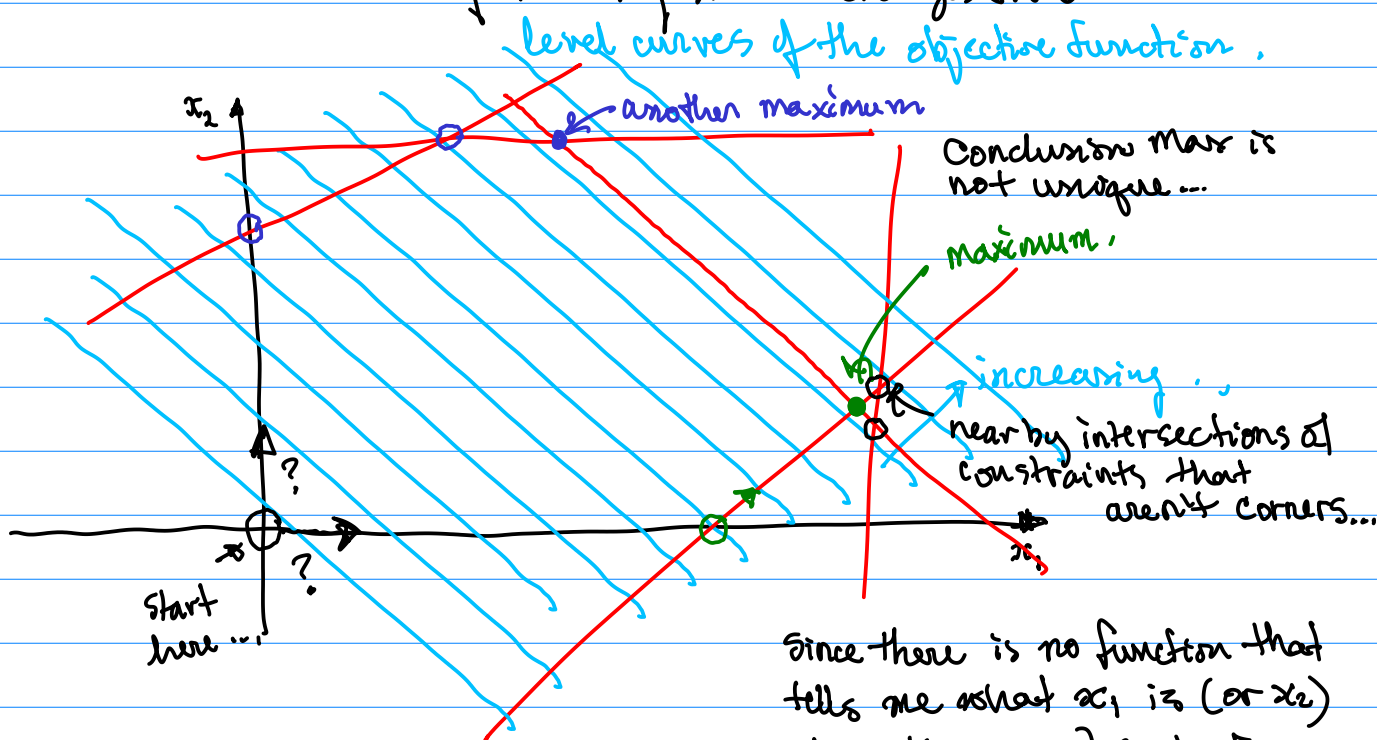 level curves of the objective function.
x₂
another maximum
Conclusion Max is
not unique...
maximum.
increasing...
near by intersections of
constraints that
aren't corners...
?
?
x₁
start
here...
Since there is no function that
tells me what x₁ is (or x₂)